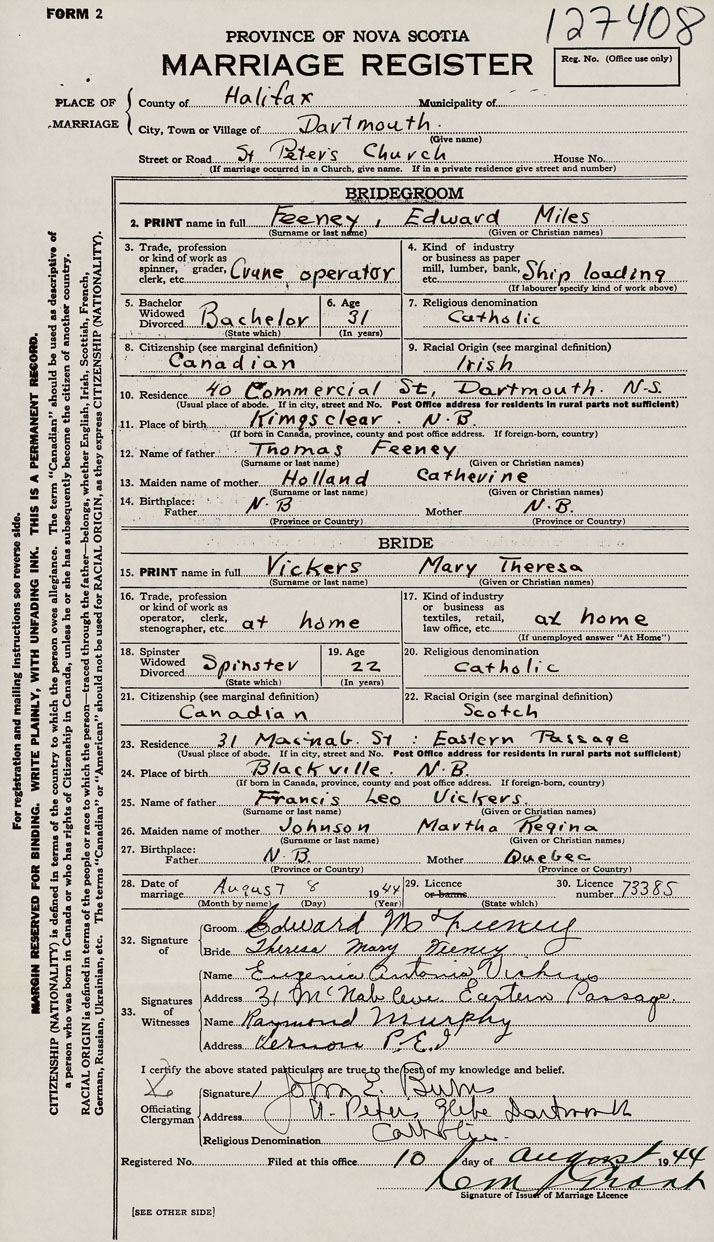 FORM 2
127408
PROVINCE OF NOVA SCOTIA
MARRIAGE REGISTER
Reg. No. (Office use only)
PLACE OF MARRIAGE
County of Halifax Municipality of
City, Town or Village of Dartmouth.
(Give name)
Street or Road St Peter's Church House No.
(If marriage occurred in a Church, give name. If in a private residence give street and number)
BRIDEGROOM
2. PRINT name in full Feeney, Edward Miles
(Surname or last name) (Given or Christian names)
3. Trade, profession or kind of work as spinner, grader, clerk, etc. Crane operator
4. Kind of industry or business as paper mill, lumber, bank, etc. Ship loading
(If labourer specify kind of work above)
5. Bachelor Widowed Divorced Bachelor
(State which)
6. Age 31
(In years)
7. Religious denomination
Catholic
8. Citizenship (see marginal definition)
Canadian
9. Racial Origin (see marginal definition)
Irish
10. Residence 40 Commercial St, Dartmouth. N.S.
(Usual place of abode. If in city, street and No. Post Office address for residents in rural parts not sufficient)
11. Place of birth Kingsclear. N.B.
(If born in Canada, province, county and post office address. If foreign-born, country)
12. Name of father Thomas Feeney
(Surname or last name) (Given or Christian names)
13. Maiden name of mother Holland Catherine
(Surname or last name) (Given or Christian names)
14. Birthplace:
Father N.B Mother N.B.
(Province or Country) (Province or Country)
BRIDE
15. PRINT name in full Vickers Mary Theresa
(Surname or last name) (Given or Christian names)
16. Trade, profession or kind of work as operator, clerk, stenographer, etc. at home
17. Kind of industry or business as textiles, retail, law office, etc. at home
(If unemployed answer "At Home")
18. Spinster Widowed Divorced Spinster
(State which)
19. Age 22
(In years)
20. Religious denomination
Catholic
21. Citizenship (see marginal definition)
Canadian
22. Racial Origin (see marginal definition)
Scotch
23. Residence 31 Macnab. St : Eastern Passage
(Usual place of abode. If in city, street and No. Post Office address for residents in rural parts not sufficient)
24. Place of birth Blackville. N.B.
(If born in Canada, province, county and post office address. If foreign-born, country)
25. Name of father Francis Leo Vickers.
(Surname or last name) (Given or Christian names)
26. Maiden name of mother Johnson Martha Regina
(Surname or last name) (Given or Christian names)
27. Birthplace:
Father N.B. Mother Quebec
(Province or Country) (Province or Country)
28. Date of marriage August 8 1944
(Month by name) (Day) (Year)
29. Licence or banns
(State which)
30. Licence number 73385
32. Signature of
Groom Edward M Feeney
Bride Theresa Mary Feeney
33. Signatures of Witnesses
Name Eugenia Antonia Vickers
Address 31 McNab Ave. Eastern Passage.
Name Raymond Murphy
Address Vernon P.E.I
I certify the above stated particulars are true to the best of my knowledge and belief.
Officiating Clergyman
Signature John E. Burns
Address St. Peters Glebe Dartmouth
Religious Denomination Catholic.
Registered No. Filed at this office 10 day of August 1944
Signature of Issuer of Marriage Licence
[SEE OTHER SIDE]
For registration and mailing instructions see reverse side.
MARGIN RESERVED FOR BINDING. WRITE PLAINLY, WITH UNFADING INK. THIS IS A PERMANENT RECORD.
CITIZENSHIP (NATIONALITY) is defined in terms of the country to which the person owes allegiance. The term "Canadian" should be used as descriptive of
a person who was born in Canada or who has rights of Citizenship in Canada, unless he or she has subsequently become the citizen of another country.
RACIAL ORIGIN is defined in terms of the people or race to which the person—traced through the father—belongs, whether English, Irish, Scottish, French,
German, Russian, Ukrainian, etc. The terms "Canadian" or "American" should not be used for RACIAL ORIGIN, as they express CITIZENSHIP (NATIONALITY).